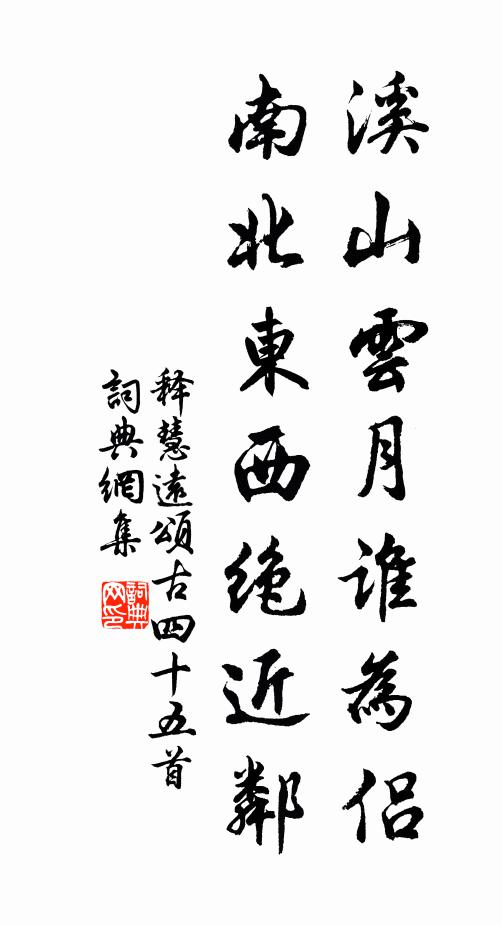 溪山雲月誰為侶
南北東西絶近鄰
释慧遠頌古四十五首
詞典網集
詞典网印